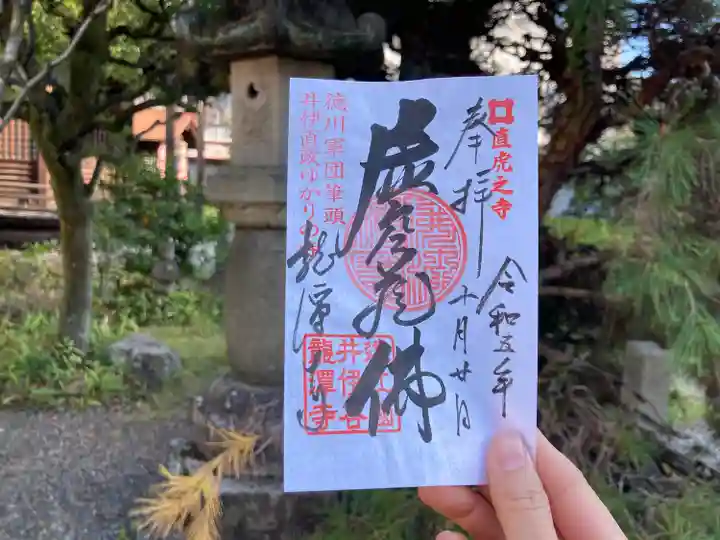 直虎之寺
奉拝
令和五年
十月廿日
虚空蔵佛
徳川軍団筆頭
井伊直政ゆかりの
龍潭寺
井伊谷
龍潭寺